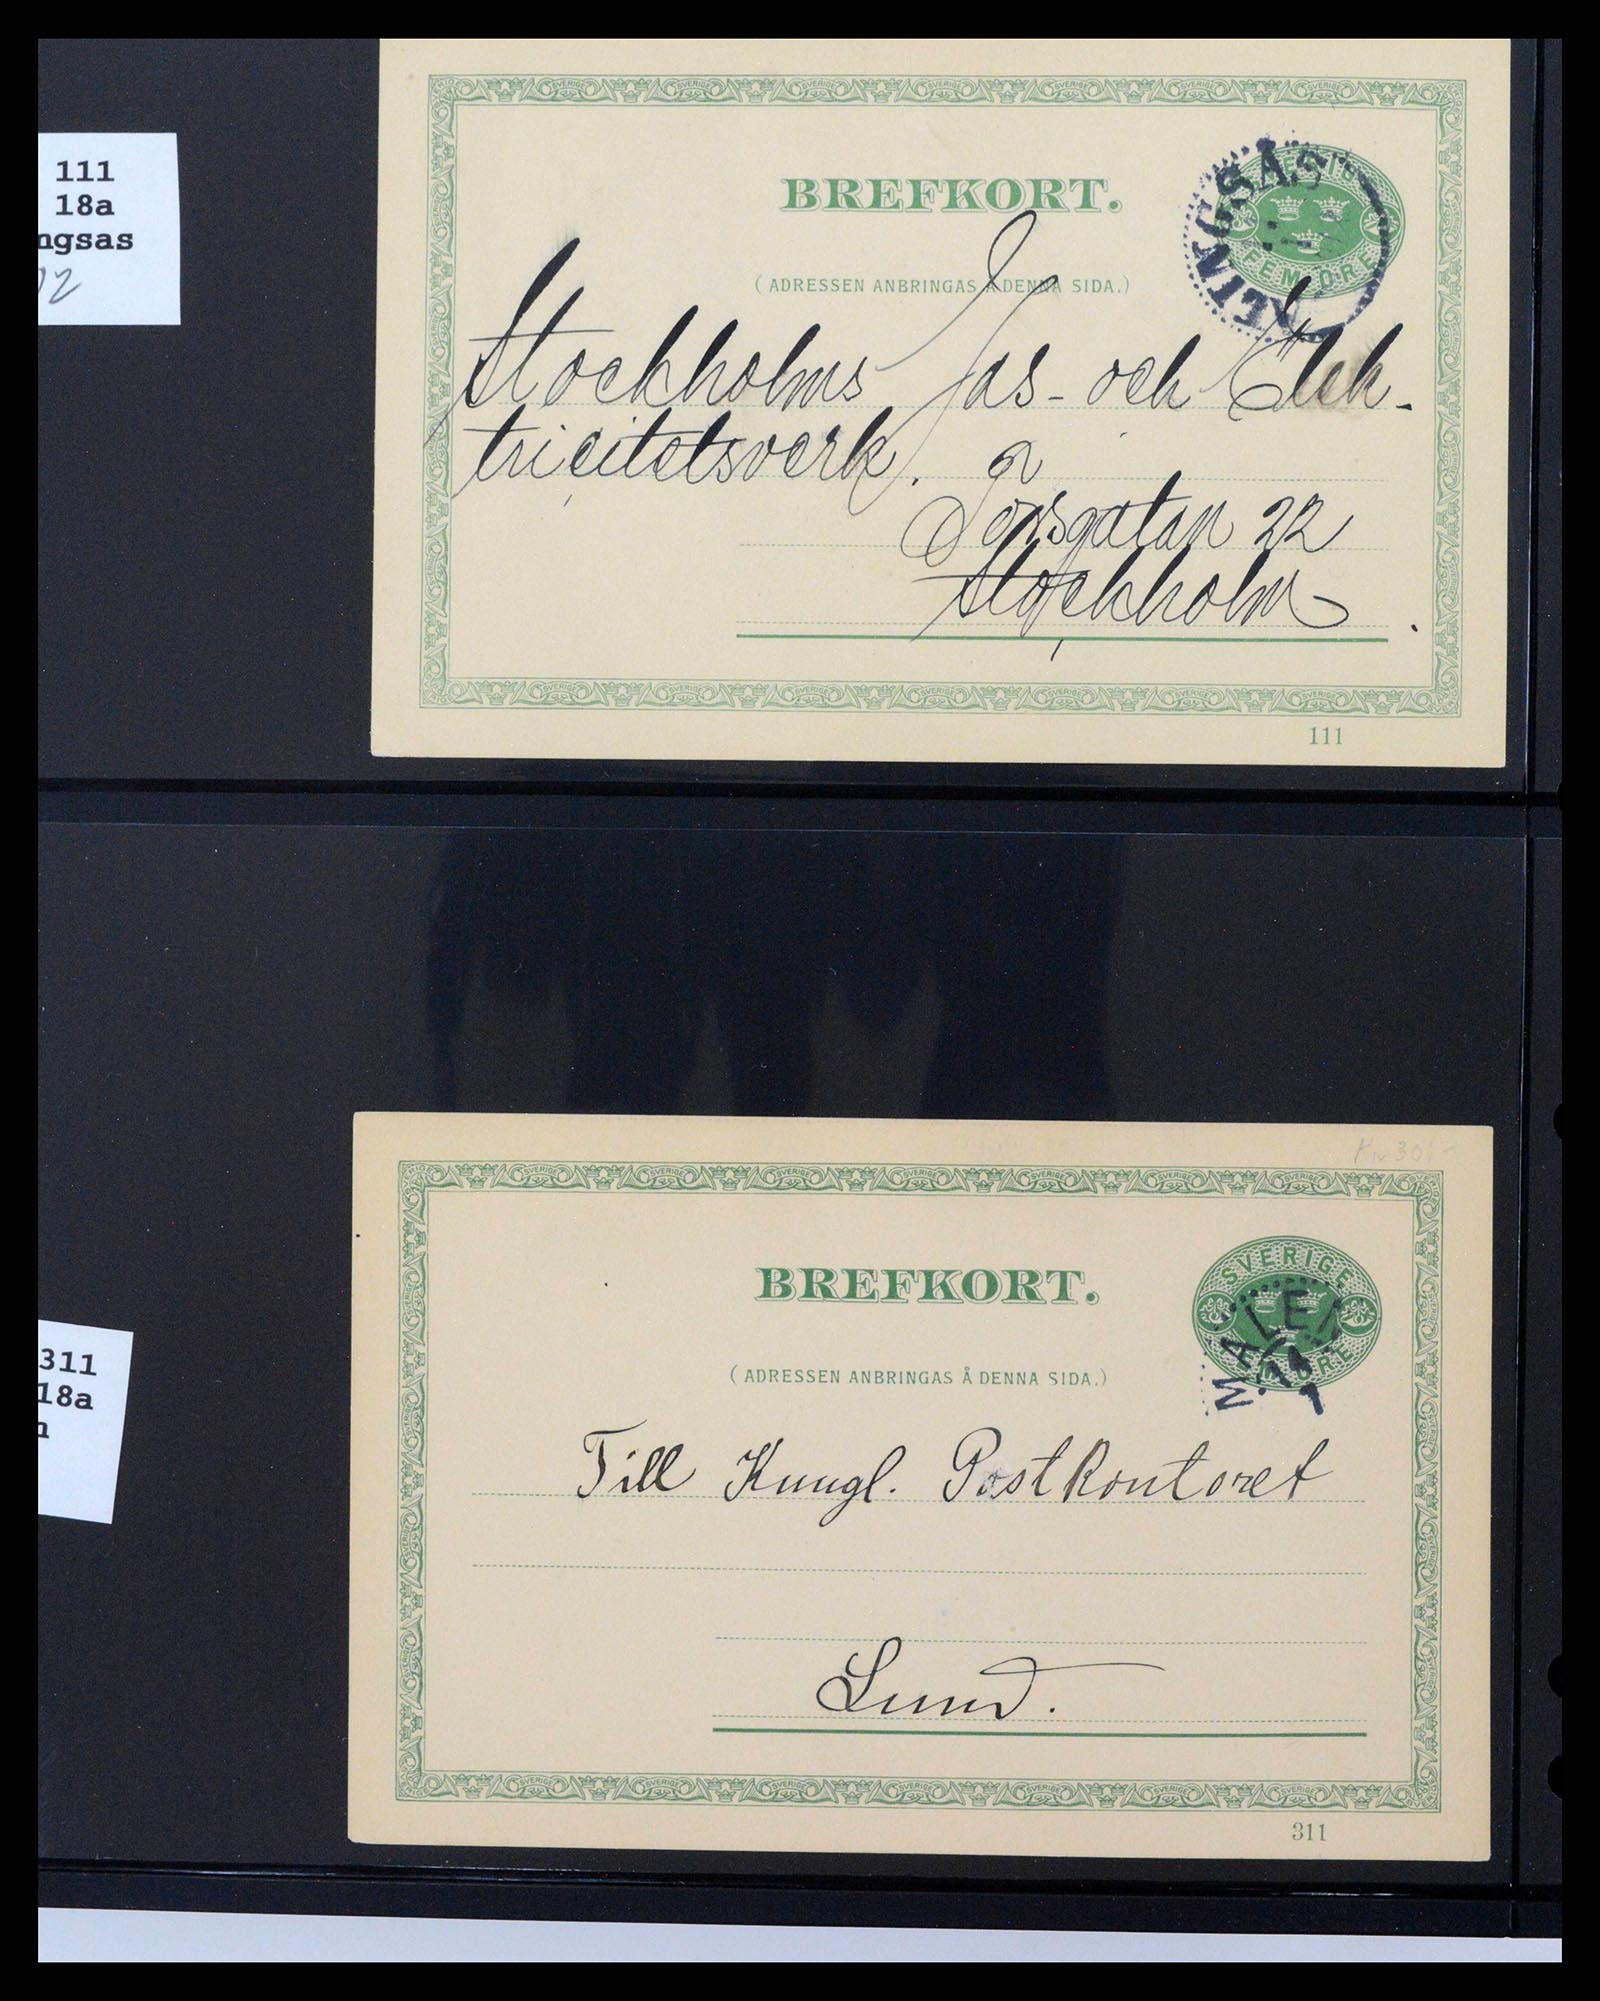 111
18a
ngsas
02
BREFKORT.
ALINGSÅS
FEM ÖRE
(ADRESSEN ANBRINGAS Å DENNA SIDA.)
Stockholms Gas- och Elek-
tricitetsverk.
Torsgatan 22
Stockholm
111
Kr 30:-
BREFKORT.
SVERIGE
MALEN
(ADRESSEN ANBRINGAS Å DENNA SIDA.)
311
18a
n
Till Kungl. Postkontoret
Lund.
311